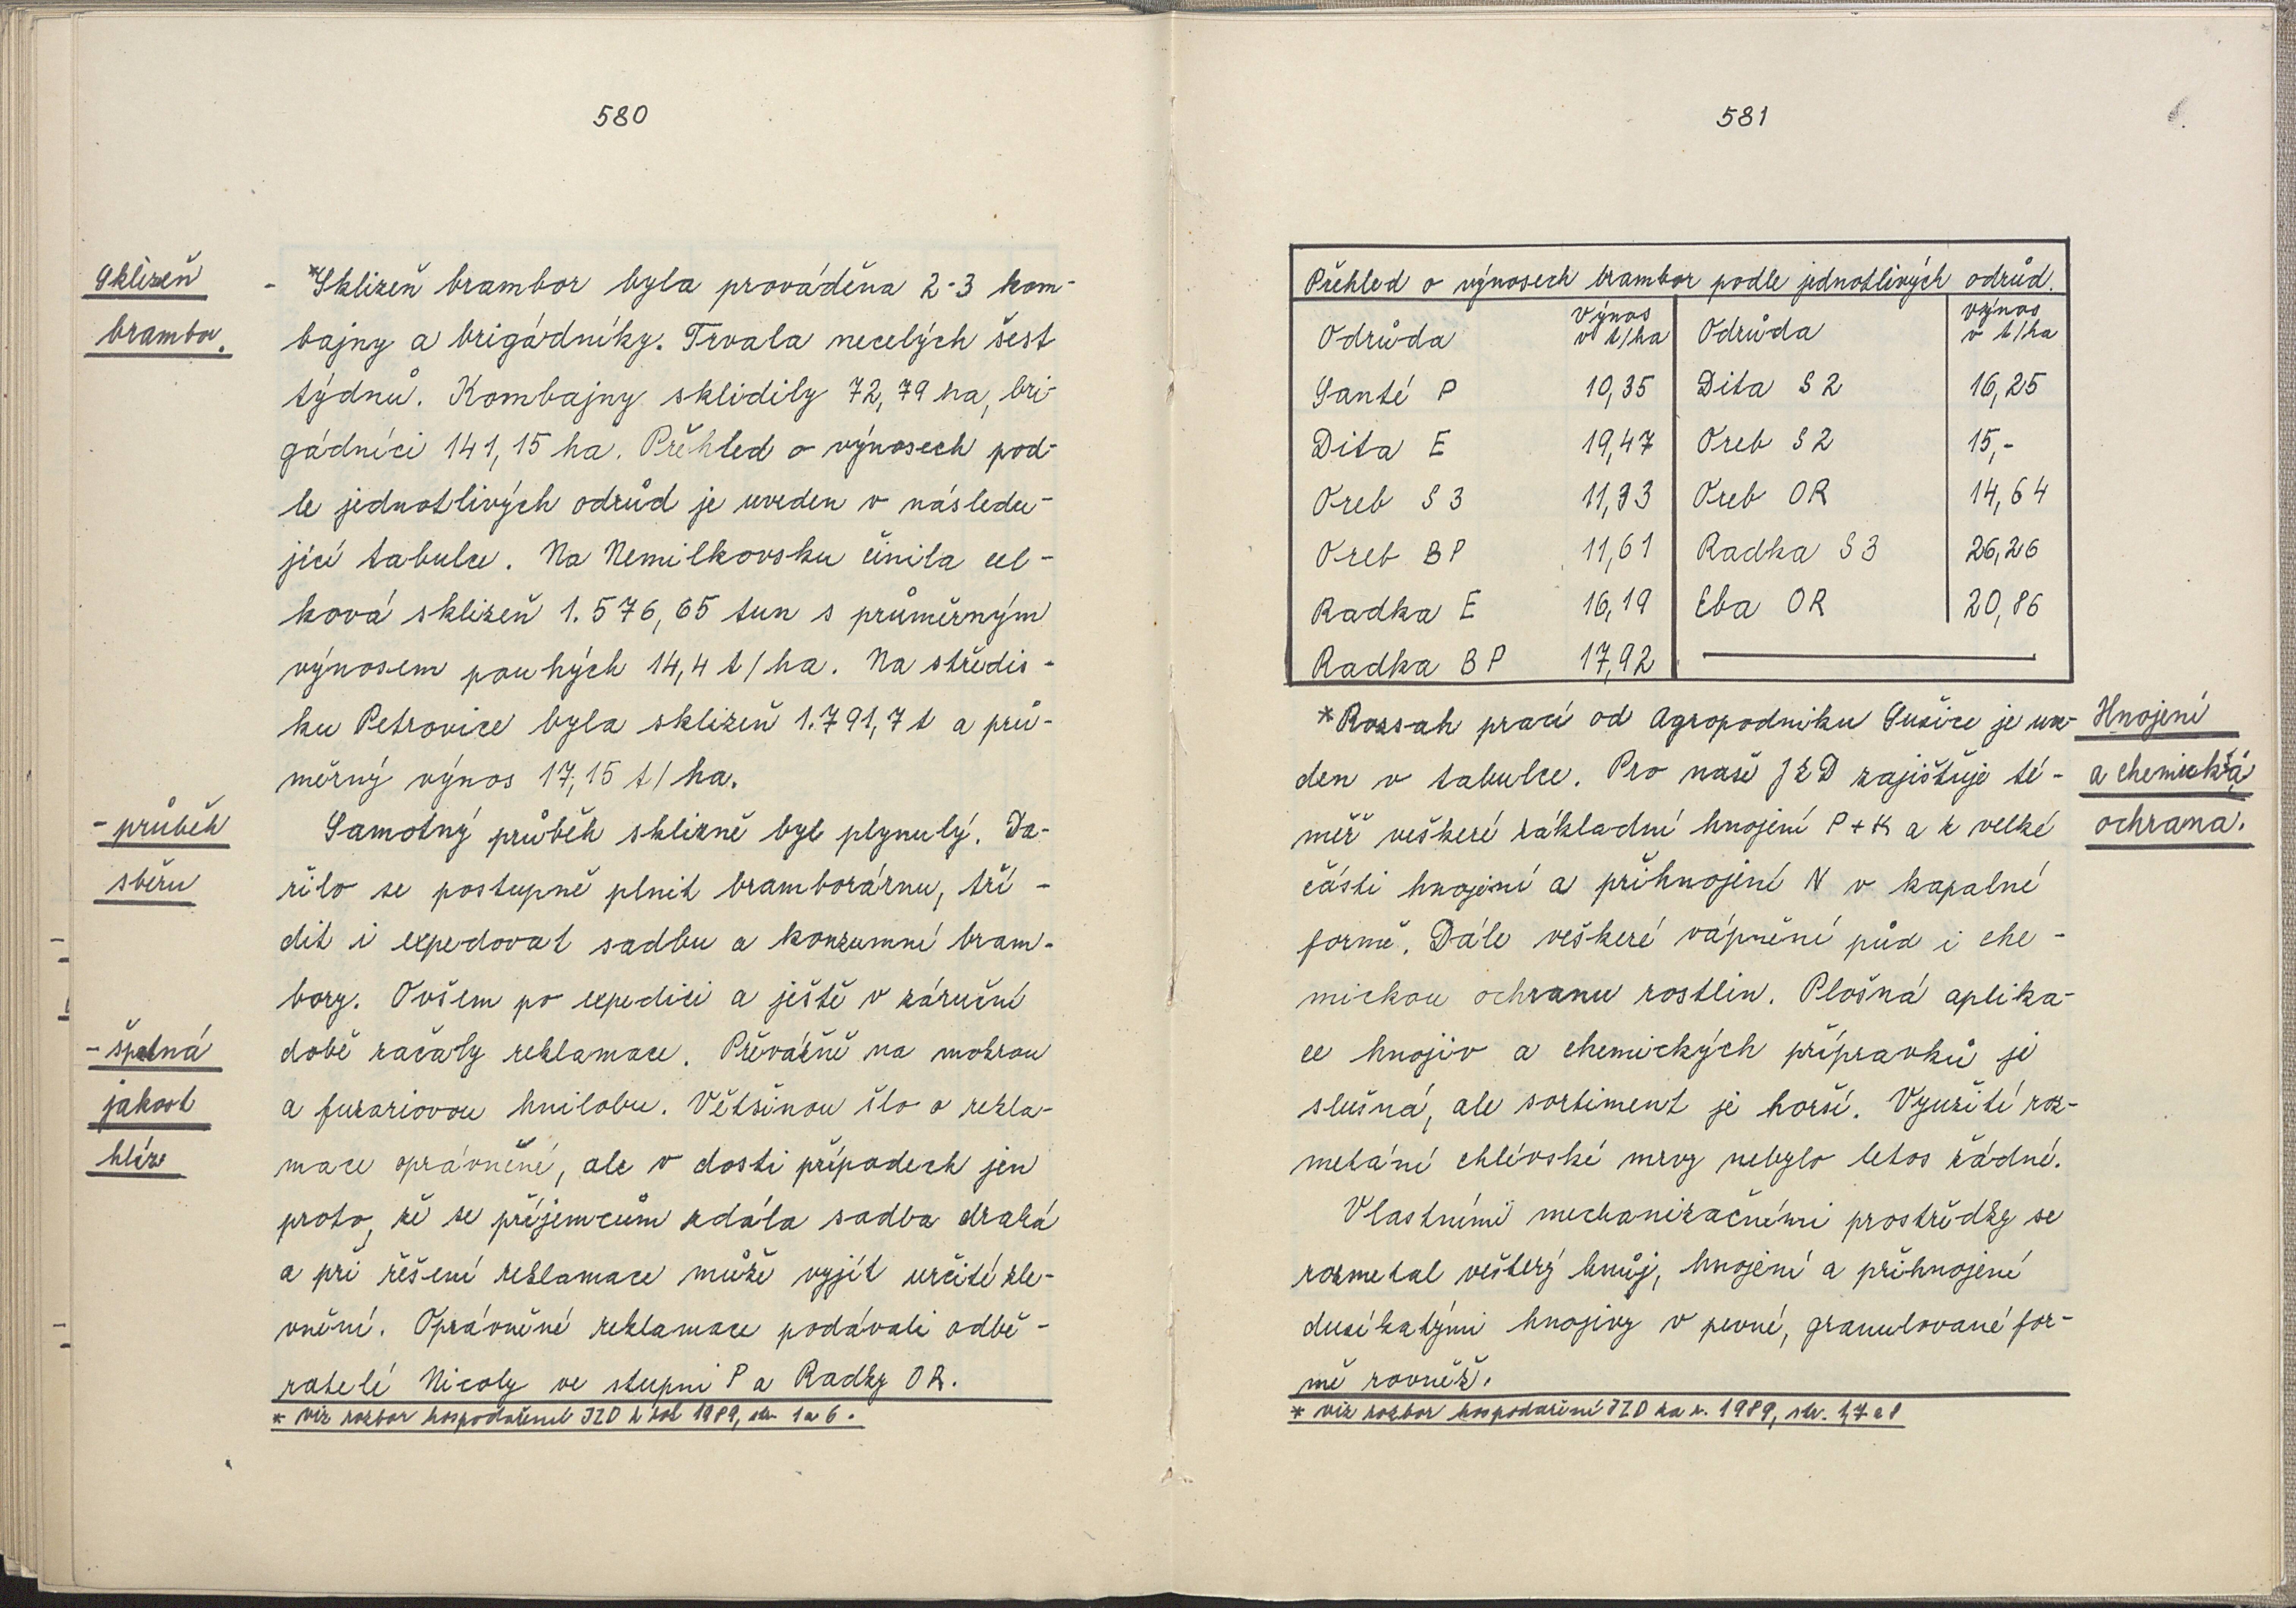 580
Sklizeň
brambor.
- *Sklizeň brambor byla prováděna 2-3 kom-
bajny a brigádníky. Trvala necelých šest
týdnů. Kombajny sklidily 72,79 ha, bri-
gádníci 141,15 ha. Přehled o výnosech pod-
le jednotlivých odrůd je uveden v následu-
jící tabulce. Na Nemilkovsku činila cel-
ková sklizeň 1.576,65 tun s průměrným
výnosem pouhých 14,4 t/ha. Na středis-
ku Petrovice byla sklizeň 1.791,7 t a prů-
měrný výnos 17,15 t/ha.
- průběh
sběru
Samotný průběh sklizně byl plynulý. Da-
řilo se postupně plnit bramborárnu, tří-
dit i expedovat sadbu a konzumní bram-
bory. Ovšem po expedici a ještě v záruční
- špatná
jakost
hlíz
době začaly reklamace. Převážně na mokrou
a fuzariovou hnilobu. Většinou šlo o rekla-
mace oprávněné, ale v dosti případech jen
proto, že se příjemcům zdála sadba drahá
a při řešení reklamace může vyjít určité zle-
vnění. Oprávněné reklamace podávali odbě-
ratelé Nicoly ve stupni P a Radky OR.
* viz rozbor hospodaření JZD z rok 1989, str. 1 a 6.
581
Přehled o výnosech brambor podle jednotlivých odrůd.
Odrůda výnos v t/ha Odrůda výnos v t/ha
Santé P 10,35 Dita S2 16,25
Dita E 19,47 Oreb S2 15,-
Oreb S3 11,93 Oreb OR 14,64
Oreb BP 11,61 Radka S3 26,26
Radka E 16,19 Eba OR 20,86
Radka BP 17,92
*Rozsah prací od Agropodniku Sušice je uve-
den v tabulce. Pro naše JZD zajišťuje té-
měř veškeré základní hnojení P + K a z velké
Hnojení
a chemická
ochrana.
části hnojení a přihnojení N v kapalné
formě. Dále veškeré vápnění půd i che-
mickou ochranu rostlin. Plošná aplika-
ce hnojiv a chemických přípravků je
slušná, ale sortiment je horší. Využití roz-
metání chlévské mrvy nebylo letos žádné.
Vlastními mechanizačními prostředky se
rozmetal veškerý hnůj, hnojení a přihnojení
dusíkatými hnojivy v pevné, granulované for-
mě rovněž.
* viz rozbor hospodaření JZD za r. 1989, str. 1,7 a 8